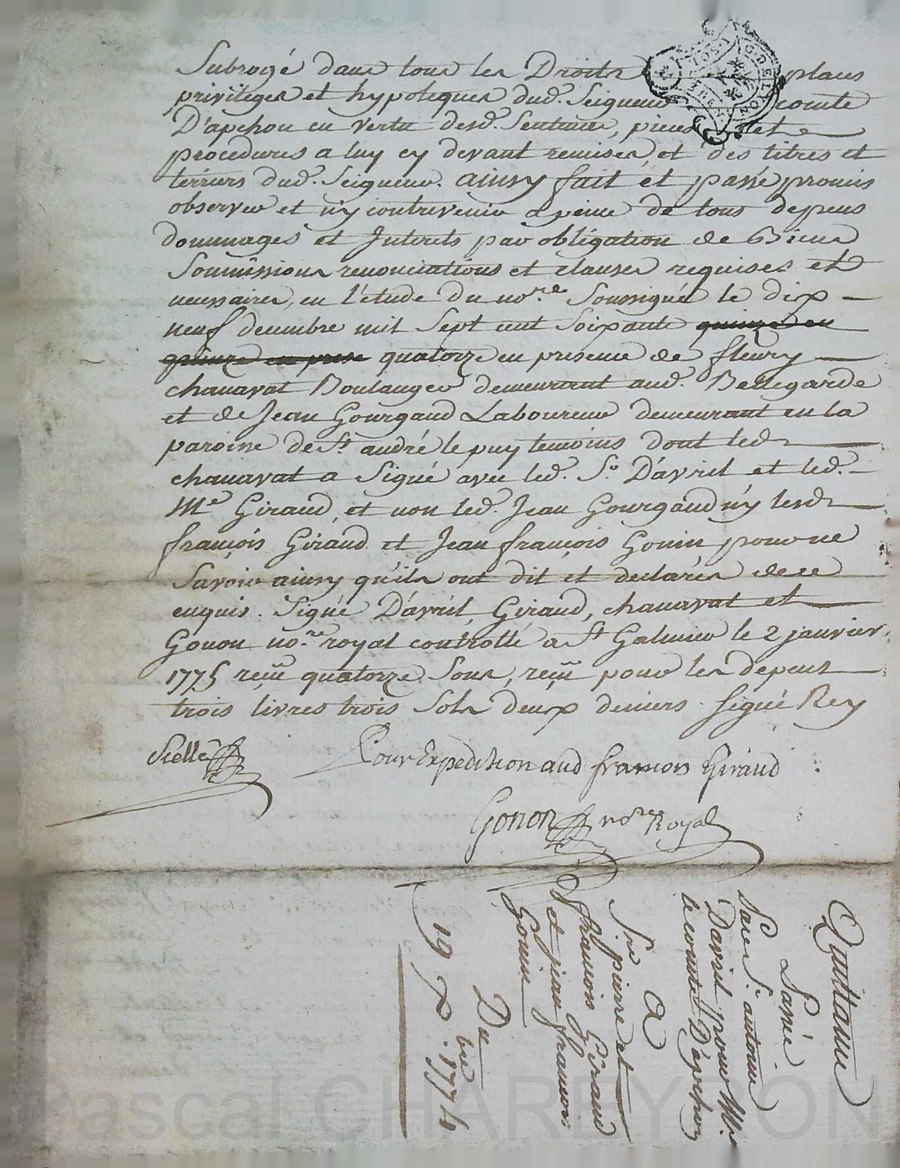 Subrogé dans tous les Droits places
privileges et hypoteques dud. Seigneur comte
D'apchon en vertu desd. Sentence, pieces et
procedures a luy cy devant remises et des titres et
terriers dud. Seigneur. ainsy fait et passé promis
observer et n'y contrevenir a peine de tous depens
dommages et Interets par obligation de Biens
Soumissions renonciations et clauses requises et
necessaires, en l'etude du no.re Soussigné le dix
neuf decembre mil Sept cent Soixante quinze en
quinze en prese quatorze en presence de fleury
chanavat Boulanger demeurant aud. Bellegarde
et de Jean Gourgaud Laboureur demeurant en la
paroisse de St. andré le puy temoins dont led.
chanavat a Signé avec led. Sr. Davril et led.
Me Giraud, et non led. Jean Gourgaud n'y lesd.
françois Giraud et Jean françois Gonin pour ne
Savoir ainsy qu'ils ont dit et declarés de ce
enquis. Signé D'avril, Giraud, chanavat et
Gonon no.re royal controllé a St Galmier le 2 janvier
1775 reçu quatorze Sous, reçu pour les depens
trois livres trois Sols deux deniers. Signé Rey
Scellé
Pour Expedition aud françois Giraud
Gonon no.re Royal
Quittance
Passé
Par Sr. antoine
Davril pour Mr
le comte D'apchon
A
Srs pierre et
françois Giraud
et jean françois
Gonin
Du
19 xbre 1774
G. DE LYON
Pascal CHAREYRON